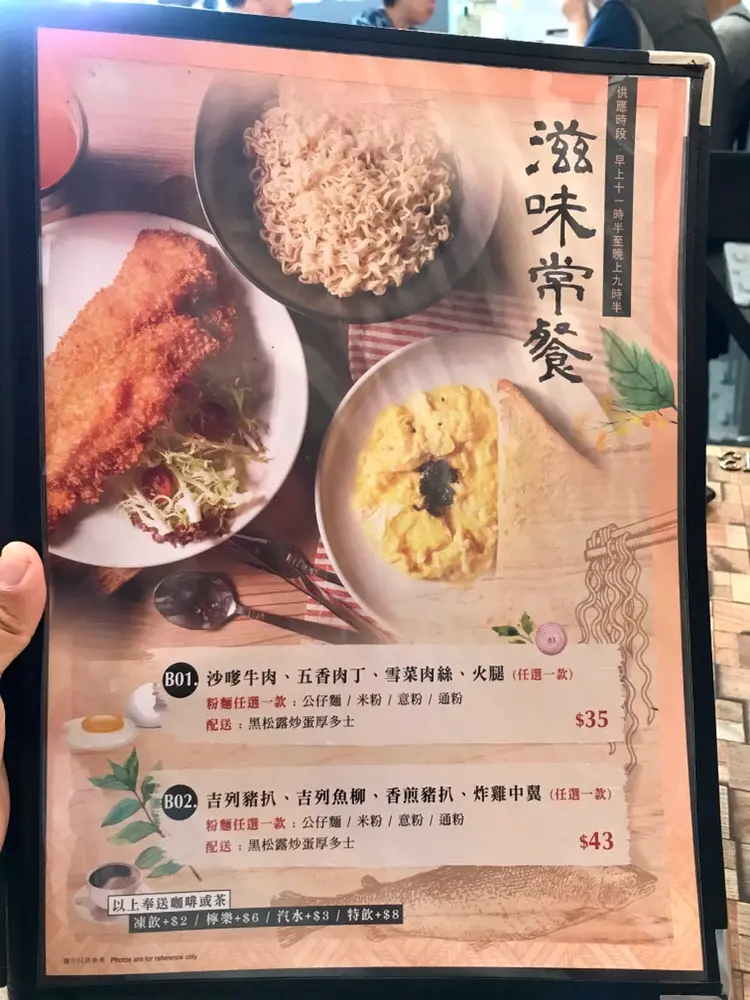 供應時段：早上十一時半至晚上九時半
滋味常餐
B01. 沙嗲牛肉、五香肉丁、雪菜肉絲、火腿 (任選一款)
粉麵任選一款：公仔麵 / 米粉 / 意粉 / 通粉
配送：黑松露炒蛋厚多士
$35
B02. 吉列豬扒、吉列魚柳、香煎豬扒、炸雞中翼 (任選一款)
粉麵任選一款：公仔麵 / 米粉 / 意粉 / 通粉
配送：黑松露炒蛋厚多士
$43
以上奉送咖啡或茶
凍飲+$2 / 檸樂+$6 / 汽水+$3 / 特飲+$8
圖片只供參考 Photos are for reference only